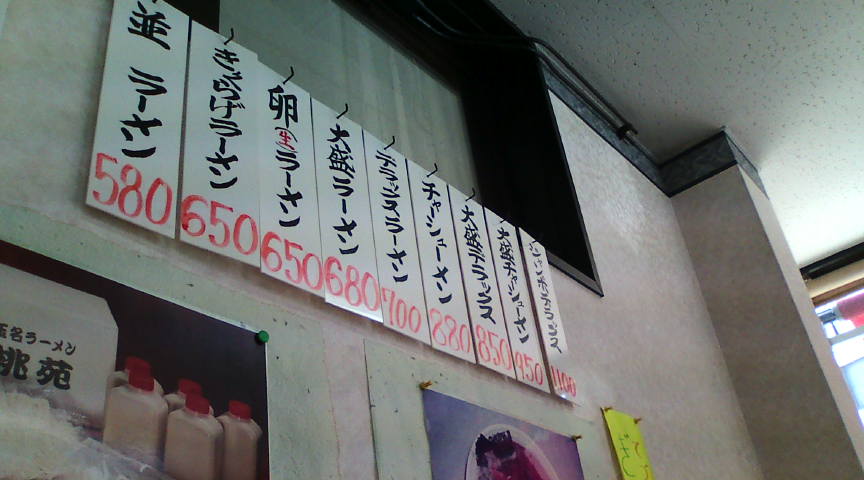 並 ラーメン 580
きくらげラーメン 650
卵(生)ラーメン 650
大盛ラーメン 680
デラックスラーメン 700
チャーシューメン 880
大盛デラックス 850
大盛チャーシューメン 950
ジャンボデラックス 1100
玉名ラーメン
桃苑